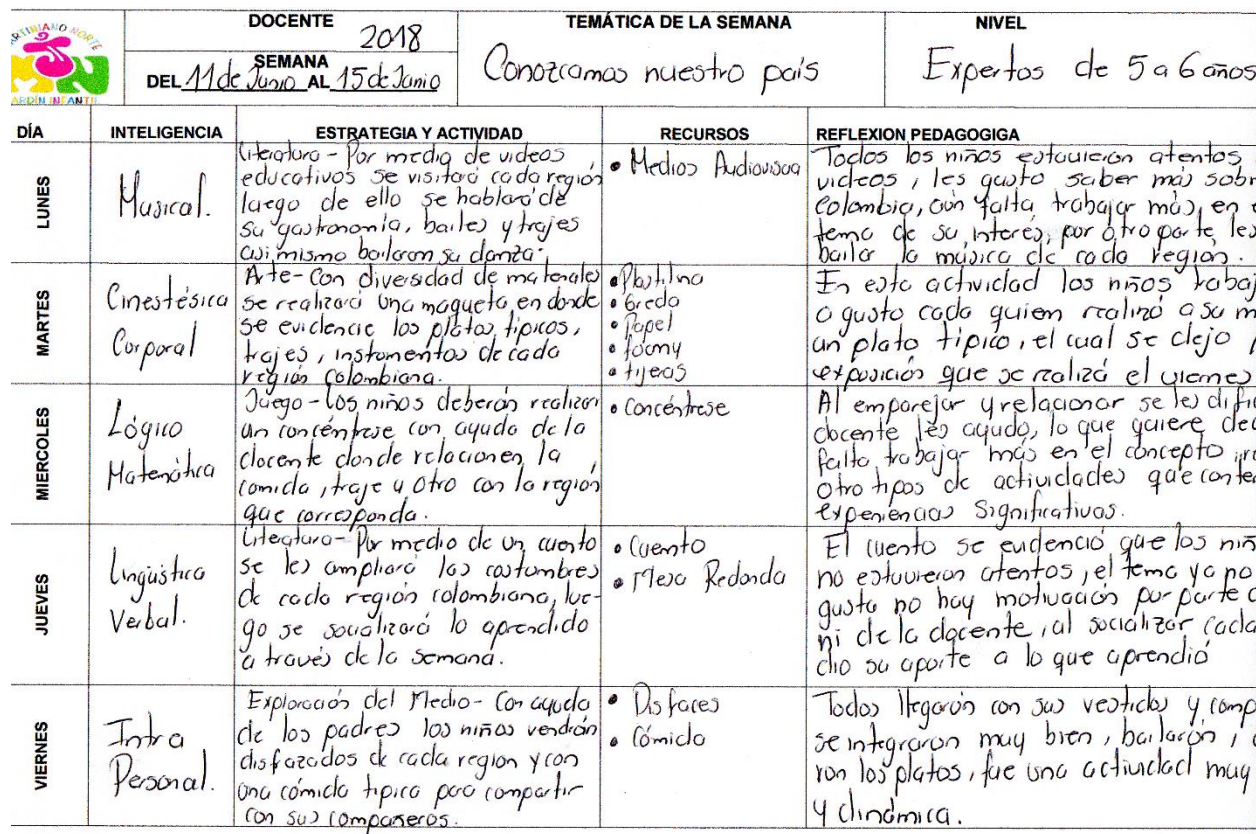 ARTINIANO NORTE
JARDÍN INFANTIL
DOCENTE
2018
SEMANA
DEL 11 de Junio AL 15 de Junio
TEMÁTICA DE LA SEMANA
Conozcamos nuestro país
NIVEL
Expertos de 5 a 6 años
DÍA
INTELIGENCIA
ESTRATEGIA Y ACTIVIDAD
RECURSOS
REFLEXION PEDAGOGIGA
LUNES
Musical.
Literatura - Por medio de videos
educativos se visitará cada región
luego de ello se hablará de
su gastronomía, bailes y trajes
asi mismo bailaron su danza.
• Medios Audiovisua
Todos los niños estuvieron atentos
videos, les gusto saber más sobr
Colombia, aún falta trabajar más, en e
tema de su interés, por otro parte, les
bailar la música de cada región.
MARTES
Cinestésica
Corporal
Arte - Con diversidad de materiales
se realizará una maqueta, en donde
se evidencie los platos típicos,
trajes, instomentos de cada
región Colombiana.
• Plastilina
• Greda
• Papel
• foamy
• tijeras
En esta actividad los niños trabaj
a gusto cada quiem realizó a su m
un plato típico, el cual se dejo p
exposición que se realizá el viernes
MIERCOLES
Lógico
Matemática
Juego - Los niños deberán realizar
un concéntrese con ayuda de la
docente donde relacionen la
comida, traje u otro con la región
que corresponda.
• Concéntrese
Al emparejar y relacionar se les dificu
docente les ayudo, lo que quiere dec
falta trabajar más en el concepto, re
otro tipos de actividades que conte
experiencias Significativas.
JUEVES
Lingüistica
Verbal.
Literatura - Por medio de un cuento
se les ampliará las costumbres
de cada región colombiana, lue-
go se socializará lo aprendido
a través de la semana.
• Cuento
• Mesa Redonda
El cuento se evidenció que los niñ
no estuvieron atentos, el tema ya no
gusta no hay motivación por parte d
ni de la docente, al socializar cada
dio su aporte a lo que aprendió
VIERNES
Intra
Personal.
Exploración del Medio - Con ayuda
de los padres los niños vendrán
disfrazados de cada region y con
una cómida tipica para compartir
con sus compañeros.
• Disfaces
• Cómida
Todos llegarón con sus vestidos y comp
se integraron muy bien, bailarón,
ron los platos, fue una actividad muy
y dinámica.